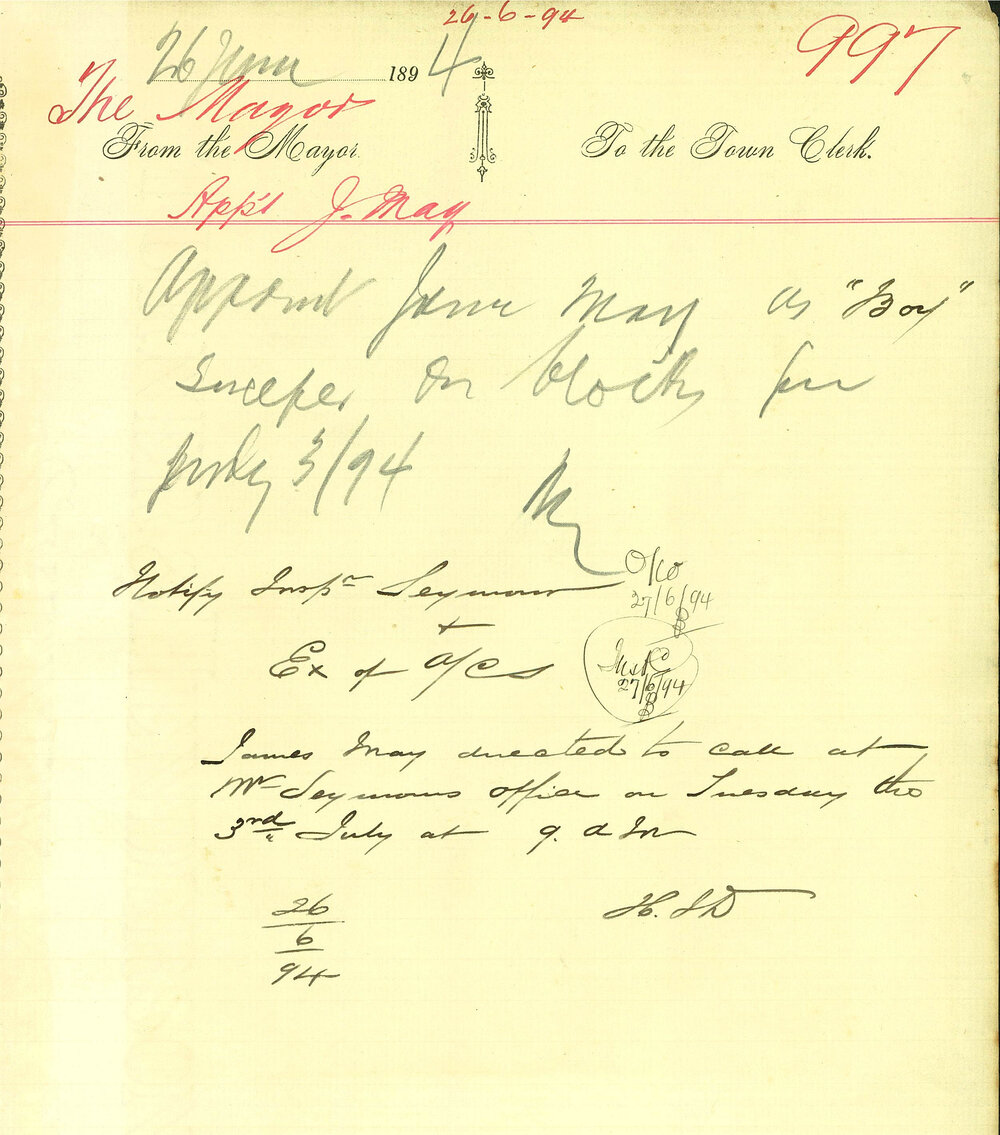 26-6-94
997
26 June 1894
The Mayor
From the Mayor.
To the Town Clerk.
App't J. May
Appoint James May as "Boy"
sweeper on blocks from
July 3/94
Notify Inspr Seymour
+
Ex of a/cs
27/6/94
27/6/94
James May directed to call at
Mr Seymours office on Tuesday the
3rd July at 9. a m
26
6
94